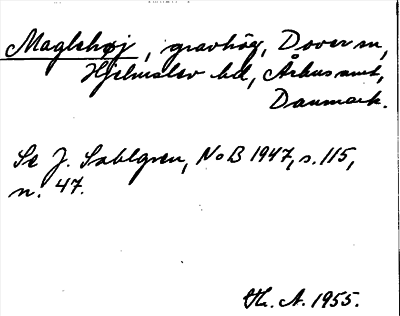 Maglehøj, gravhög, Dover sn,
Hjelmslev hd, Århus amt,
Danmark.
Se J. Sahlgren, NoB 1947, s. 115,
n. 47.
Th. A. 1955.